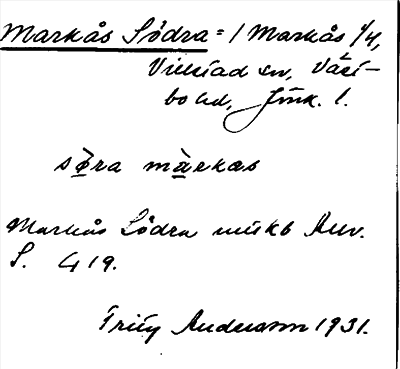 Markås Södra = 1 Markås 1/4,
Villstad sn, Väst-
bo hd, Jönk. l.
sø̀ra màrkas
Markås Södra mtskb Arv.
S. 419.
Fritz Andersson 1931.